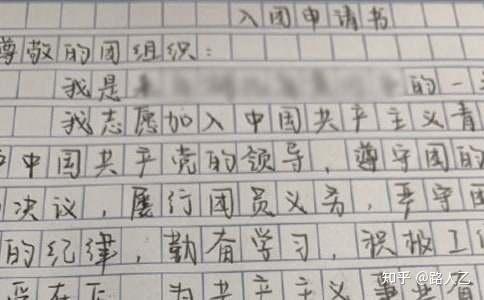 入团申请书
尊敬的团组织：
我是 的一
我志愿加入中国共产主义青
中国共产党的领导，遵守团的
决议，履行团员义务，严守团
的纪律，勤奋学习，积极工
为共产主义事业
知乎 @路人乙